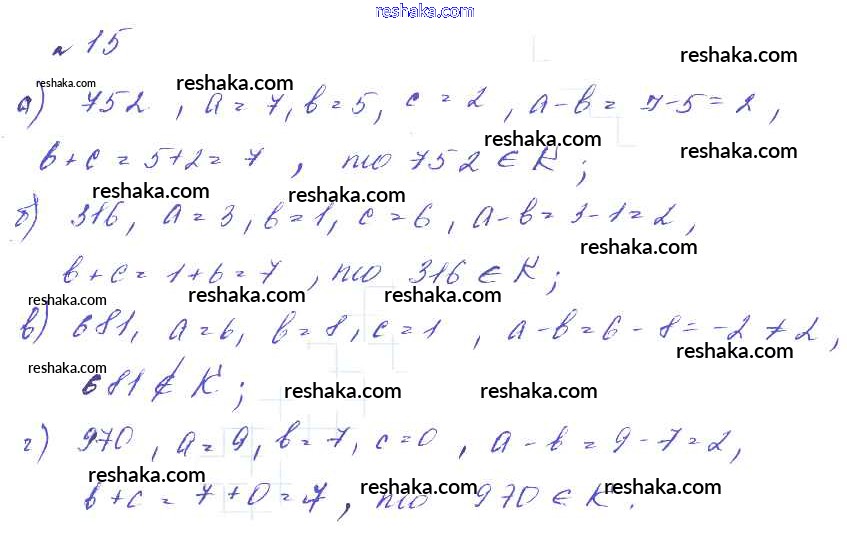 reshaka.com
№15
reshaka.com
reshaka.com reshaka.com
а) 752, a = 7, b = 5, c = 2, a-b = 7-5 = 2,
reshaka.com reshaka.com
b+c = 5+2 = 7, то 752 ∈ K;
reshaka.com reshaka.com
б) 316, a = 3, b = 1, c = 6, a-b = 3-1 = 2,
reshaka.com
b+c = 1+6 = 7, то 316 ∈ K;
reshaka.com reshaka.com reshaka.com
в) 681, a = 6, b = 8, c = 1, a-b = 6-8 = -2 ≠ 2,
reshaka.com
reshaka.com reshaka.com reshaka.com
681 ∉ K;
г) 970, a = 9, b = 7, c = 0, a-b = 9-7 = 2,
reshaka.com reshaka.com reshaka.com
b+c = 7+0 = 7, то 970 ∈ K.